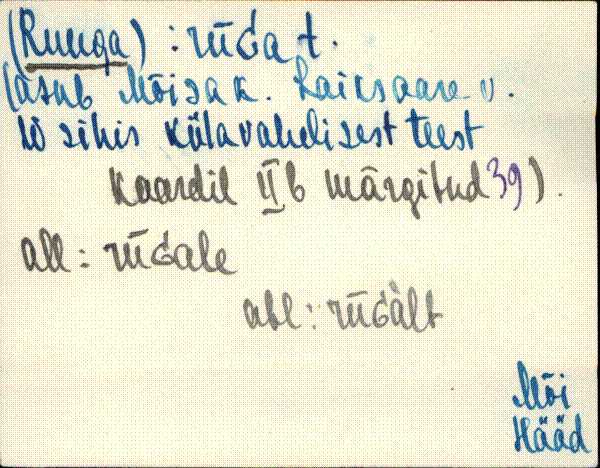 (Ruuga) : rūGa t.
(asub Mõisa k. Laiksaare v.
W sihis külavahelisest teest
kaardil IIb märgitud 39).
all : rūGale
abl : rūGàlt
Mõi
Hääd